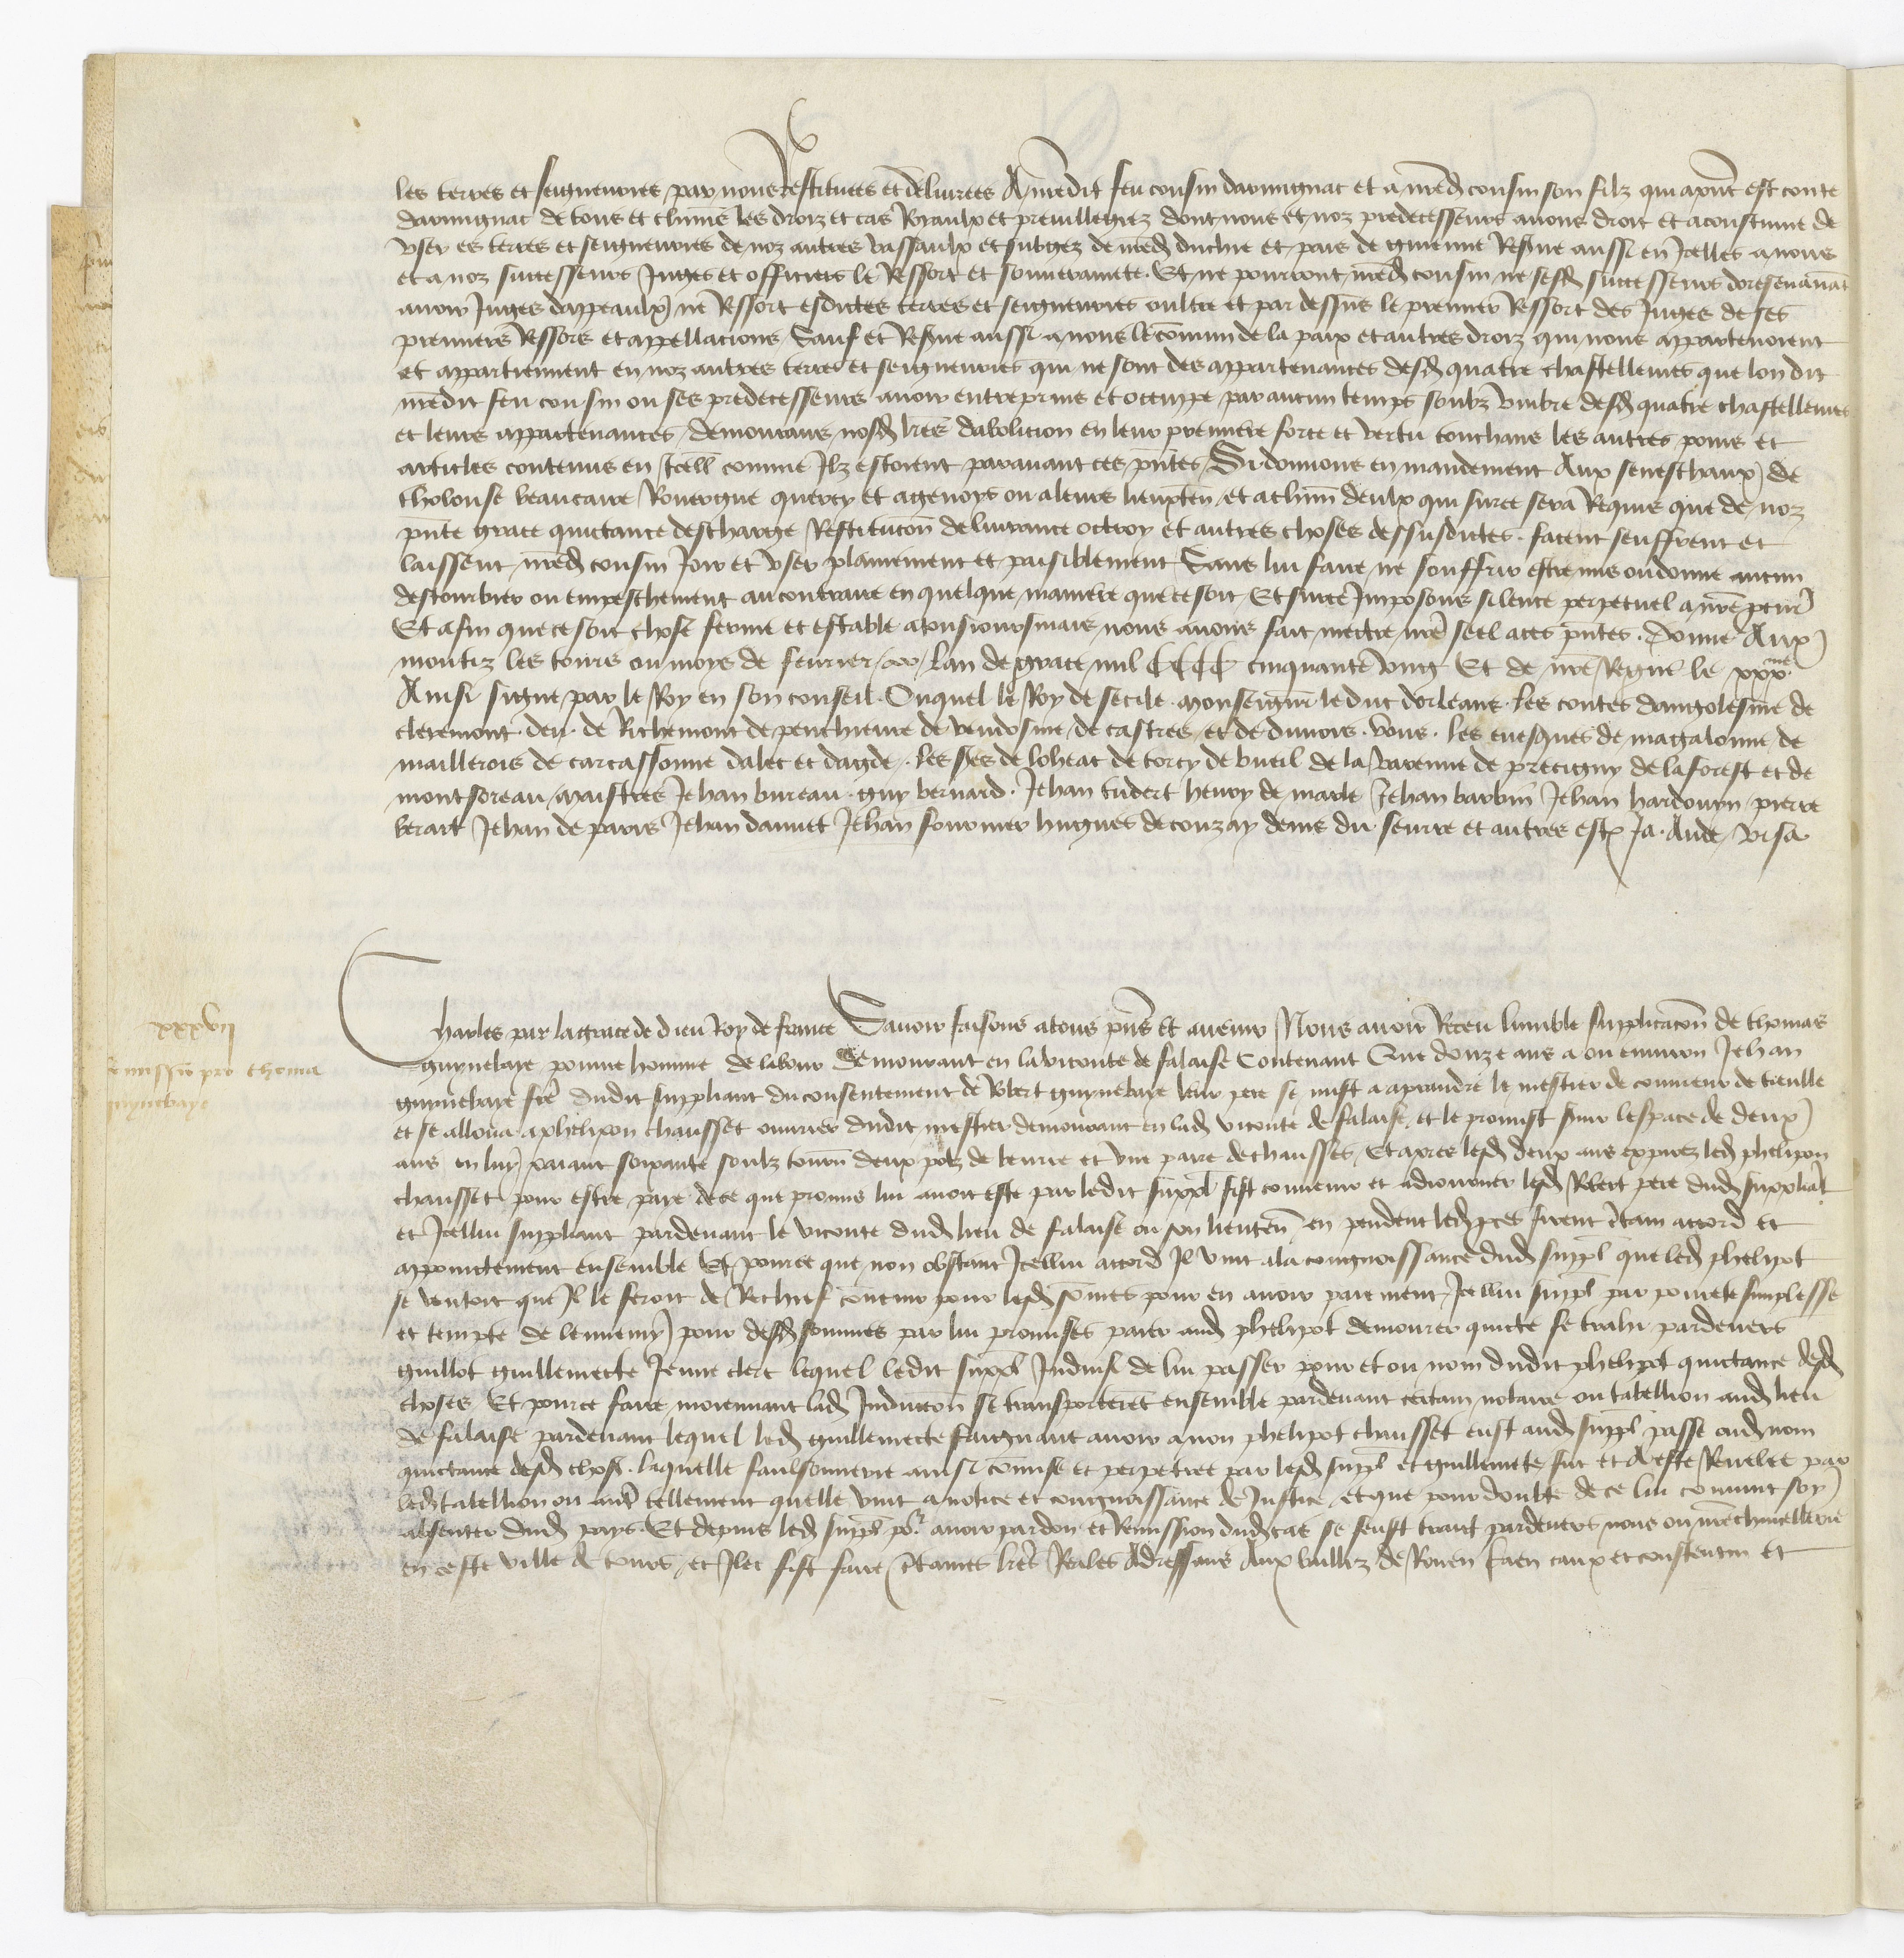 les terres et seigneuries par nous restituees et delivrees A nredit feu cousin darmignac et a nred cousin son filz qui apnt est conte
darmignac de tous et chuns les droiz et cas Royaulx et previllegiez dont nous et noz predecesseurs avons droit et acoustume de
user es terres et seigneuries de noz autres vassaulx et subgez de nred duchie et pais de guienne Reserve aussi en Icelles a nous
et a noz successeurs Juges et officiers le Ressort et souverainete. Et ne pourront nred cousin ne sesd successeurs doresenavant
avoir Juges dappeaulx ne Ressort esdictes terres et seigneuries oultre et par dessus le premier Ressort des Juges de ses
premiers Ressors et appellacions Sauf et Reserve aussi a nous le comun de la paix et autres droiz qui nous appartenoient
et appartiennent en noz autres terres et seigneuries qui ne sont des appartenances desd quatre chastellenies que lon dit
nredit feu cousin ou ses predecesseurs avoir entreprins et occuppe par aucun temps soubz umbre desd quatre chastellenies
et leurs appartenances demourans nosd lres dabolicion en leur premiere force et vertu touchans les autres poins et
articles contenus en Icell comme Ilz estoient paravant ces pntes Si donnons en mandement Aux seneschaux de
tholouse beaucaire Rouergue quercy et agenoys ou a leurs lieuxten et a chun deulx qui sur ce sera Requis que de noz
pnte grace quictance descharge Restitucon delivrance octroy et autres choses dessusdictes facent seuffrent et
laissent nred cousin Joir et user plainement et paisiblement Sans lui faire ne souffrir estre mis ou donne aucun
destourbier ou empeschement au contraire en quelque maniere que ce soit Et sur ce Imposons silence perpetuel a nre pcur
Et afin que ce soit chose ferme et estable a tousiourmais nous avons fait mectre nre seel a ces pntes. Donne Aux
montiz les tours ou moys de fevrier Lan de grace mil CCCC cinquante ung Et de nre Regne le xxxme
Ainsi signe par le Roy en son conseil. Ouquel le Roy de secile monseigneur le duc dorleans les contes dangolesme de
clermont deu de Richemont de penthievre de vendosme de castres et de dunois. Vous. les evesques de magalonne de
maillerois de carcassonne dalet et dagde. les sires de loheac de torcy de bueil de la varenne de precigny de la forest et de
montsoreau maistres Jehan bureau guy bernard. Jehan tudert henry de marle Jehan barbin Jehan hardouyn pierre
berart Jehan de paris Jehan dauvet Jehan fournier hugues de couzay denis du seurre et autres estz Ja. Aude Visa
xxxvii
Remissio pro thoma
guynebaye
Charles par la grace de dieu Roy de france Savoir faisons a tous pns et avenir Nous avoir Receu lumble supplicacon de thomas
guynebaye povre homme de labour Demourant en la viconte de falaise Contenant Que douze ans a ou environ Jehan
guynebaye fre dudit suppliant du consentement de Robert guynebaye leur pere se mist a aprandre le mestier de couvreur de tieulle
et se alloua a phelipon chausset ouvrier dudit mestier demourant en lad viconte de falaise et le promist servir lespace de deux
ans en luy paiant soixante soulz tourn deux potz de beurre et une paire de chausses Et apres lesd deux ans expirez led phelipon
chausset pour estre paie de ce que promis lui avoit este par ledit suppl fist convenir et adiourner lesd Robert pere dud suppliat
et Icellui suppliant pardevant le viconte dud lieu de falaise ou son lieuten en pendent led pces firent ctain accord et
appoinctement ensemble Et pource que non obstant Icellui accord Il vint a la congnoissance dud suppl que led phelipot
se ventoit que Il le feroit de Rechief convenir pour lesd sommes pour en avoir paiement Icellui suppl par povrete simplesse
et tempte de lennemy pour desd sommes par lui promises paier aud phelipot demourer quicte se trahi pardevers
guillot guillemecte Jeune clerc lequel ledit suppl Induisi de lui passer pour et ou nom dudit phelipot quictance desd
choses Et pource faire moiennant lad Inducion se transporterent ensemble pardevant certain notaire ou tabellion aud lieu
de falaise pardevant lequel led guillemecte faignant avoir a nom phelipot chausset eust aud suppl passe oud nom
quictance desd choses. laquelle faulsonnerie ainsi comise et perpetree par lesd suppl et guillemete fut et A este Revelee par
led tabellion ou autr tellement quelle vint a notice et congnoissance de Justice et que pour doubte de ce lui convint soy
absenter dud pays. Et depuis led suppl pour avoir pardon et Remission dud cas se feust trait pardevers nous ou nre chancellerie
en ceste ville de tours et Ilec fist faire ctaines lres Roiales Adressans Aux bailliz de Rouen Caen caux et constentin et